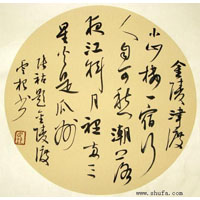 金陵津渡
小山樓一宿行
人自可愁潮落
夜江斜月裡两三
星火是瓜洲
張祜题金陵渡
www.shufa.com